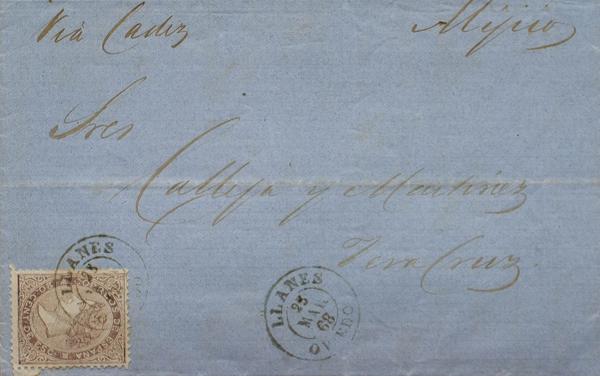 Via Cadiz
Mejico
Sres
Calleja y Martinez
Vera Cruz
LLANES
23
LLANES
23
MAR
68
OVIEDO